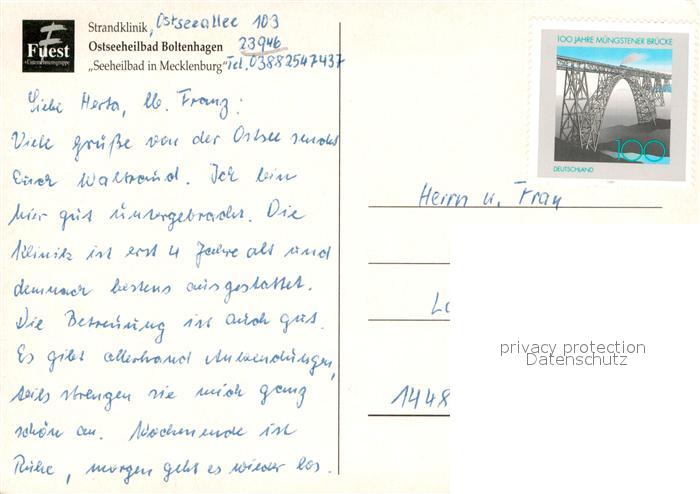 Fuest
Unternehmensgruppe
Strandklinik, Ostseeallee 103
Ostseeheilbad Boltenhagen 23946
„Seeheilbad in Mecklenburg“ Tel. 03882547437
Liebe Herta, lb. Franz:
Viele grüße von der Ostsee sendet
Euch Waltraud. Ich bin
hier gut untergebracht. Die
Klinik ist erst 4 Jahre alt und
demnach bestens ausgestattet.
Die Betreuung ist auch gut.
Es gibt allerhand Anwendungen,
teils strengen sie mich ganz
schön an. Wochenende ist
Ruhe, morgen geht es wieder los.
100 JAHRE MÜNGSTENER BRÜCKE
100
DEUTSCHLAND
Herrn u. Frau
1448
privacy protection
Datenschutz